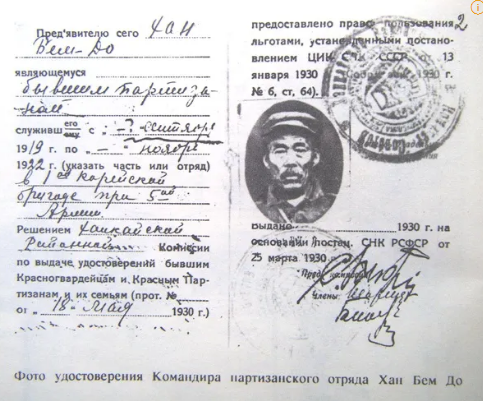 Пред'явителю сего Хан
Бем-До
являющемуся
бывшим Партиза-
ном
служивш его ему с - ? сентября
1919 г. по - " ноябрь
1922 г. (указать часть или отряд)
в 1ой Корейской
бригаде при 5ой
Армии
Решением Ханкайской
Районной Комиссии
по выдаче удостоверений бывшим
Красногвардейцам и Красным Пар-
тизанам и их семьям (прот. №
от „ 18 " мая 1930 г.)
2
предоставлено право пользования
льготами, установленными постано-
влением ЦИК СНК СССР от 13
января 1930 1930 г.
№ 6, ст, 64).
Выдано 1930 г. на
основании постен. СНК РСФСР от
25 марта 1930
Пред. комиссии
Члены:
Фото удостоверения Командира партизанского отряда Хан Бем До